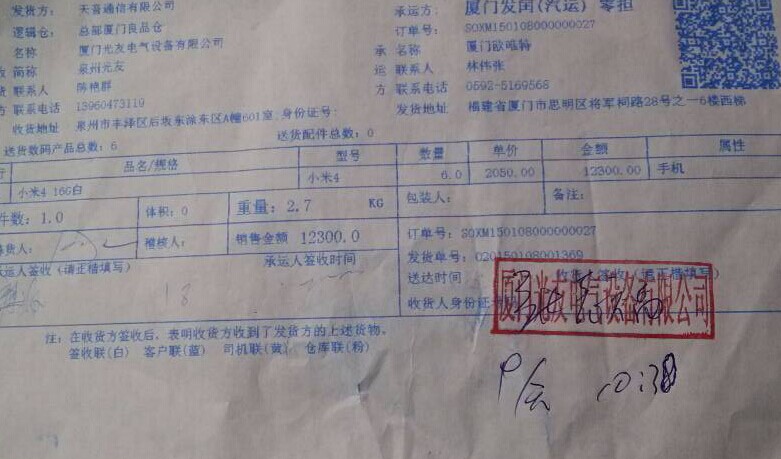 发货方: 天音通信有限公司 承运方: 厦门发闽(汽运) 零担
逻辑仓: 总部厦门良品仓 订单号: SOXM150108000000027
名称 厦门光友电气设备有限公司 承 名称 厦门欧唯特
收 简称 泉州光友 运 联系人 林伟张
货 联系人 陈艳群 方 联系电话 0592-5169568
方 联系电话 13960473119 发货地址 福建省厦门市思明区将军祠路28号之一6楼西梯
收货地址 泉州市丰泽区后坂东涂东区A幢601室;身份证号:
送货数码产品总数: 6 送货配件总数: 0
行 品名/规格 型号 数量 单价 金额 属性
小米4 16G白 小米4 6.0 2050.00 12300.00 手机
件数: 1.0 体积: 0 重量: 2.7 KG 包装人: 备注:
拣货人: 稽核人: 销售金额 12300.0 订单号: SOXM150108000000027
承运人签收 (请正楷填写) 承运人签收时间 发货单号: 020150108001369
送达时间 收货方签收 (请正楷填写)
18
收货人身份证号码
厦门光友电气设备有限公司
注: 在收货方签收后, 表明收货方收到了发货方的上述货物。
签收联(白) 客户联(蓝) 司机联(黄) 仓库联(粉)
10:38